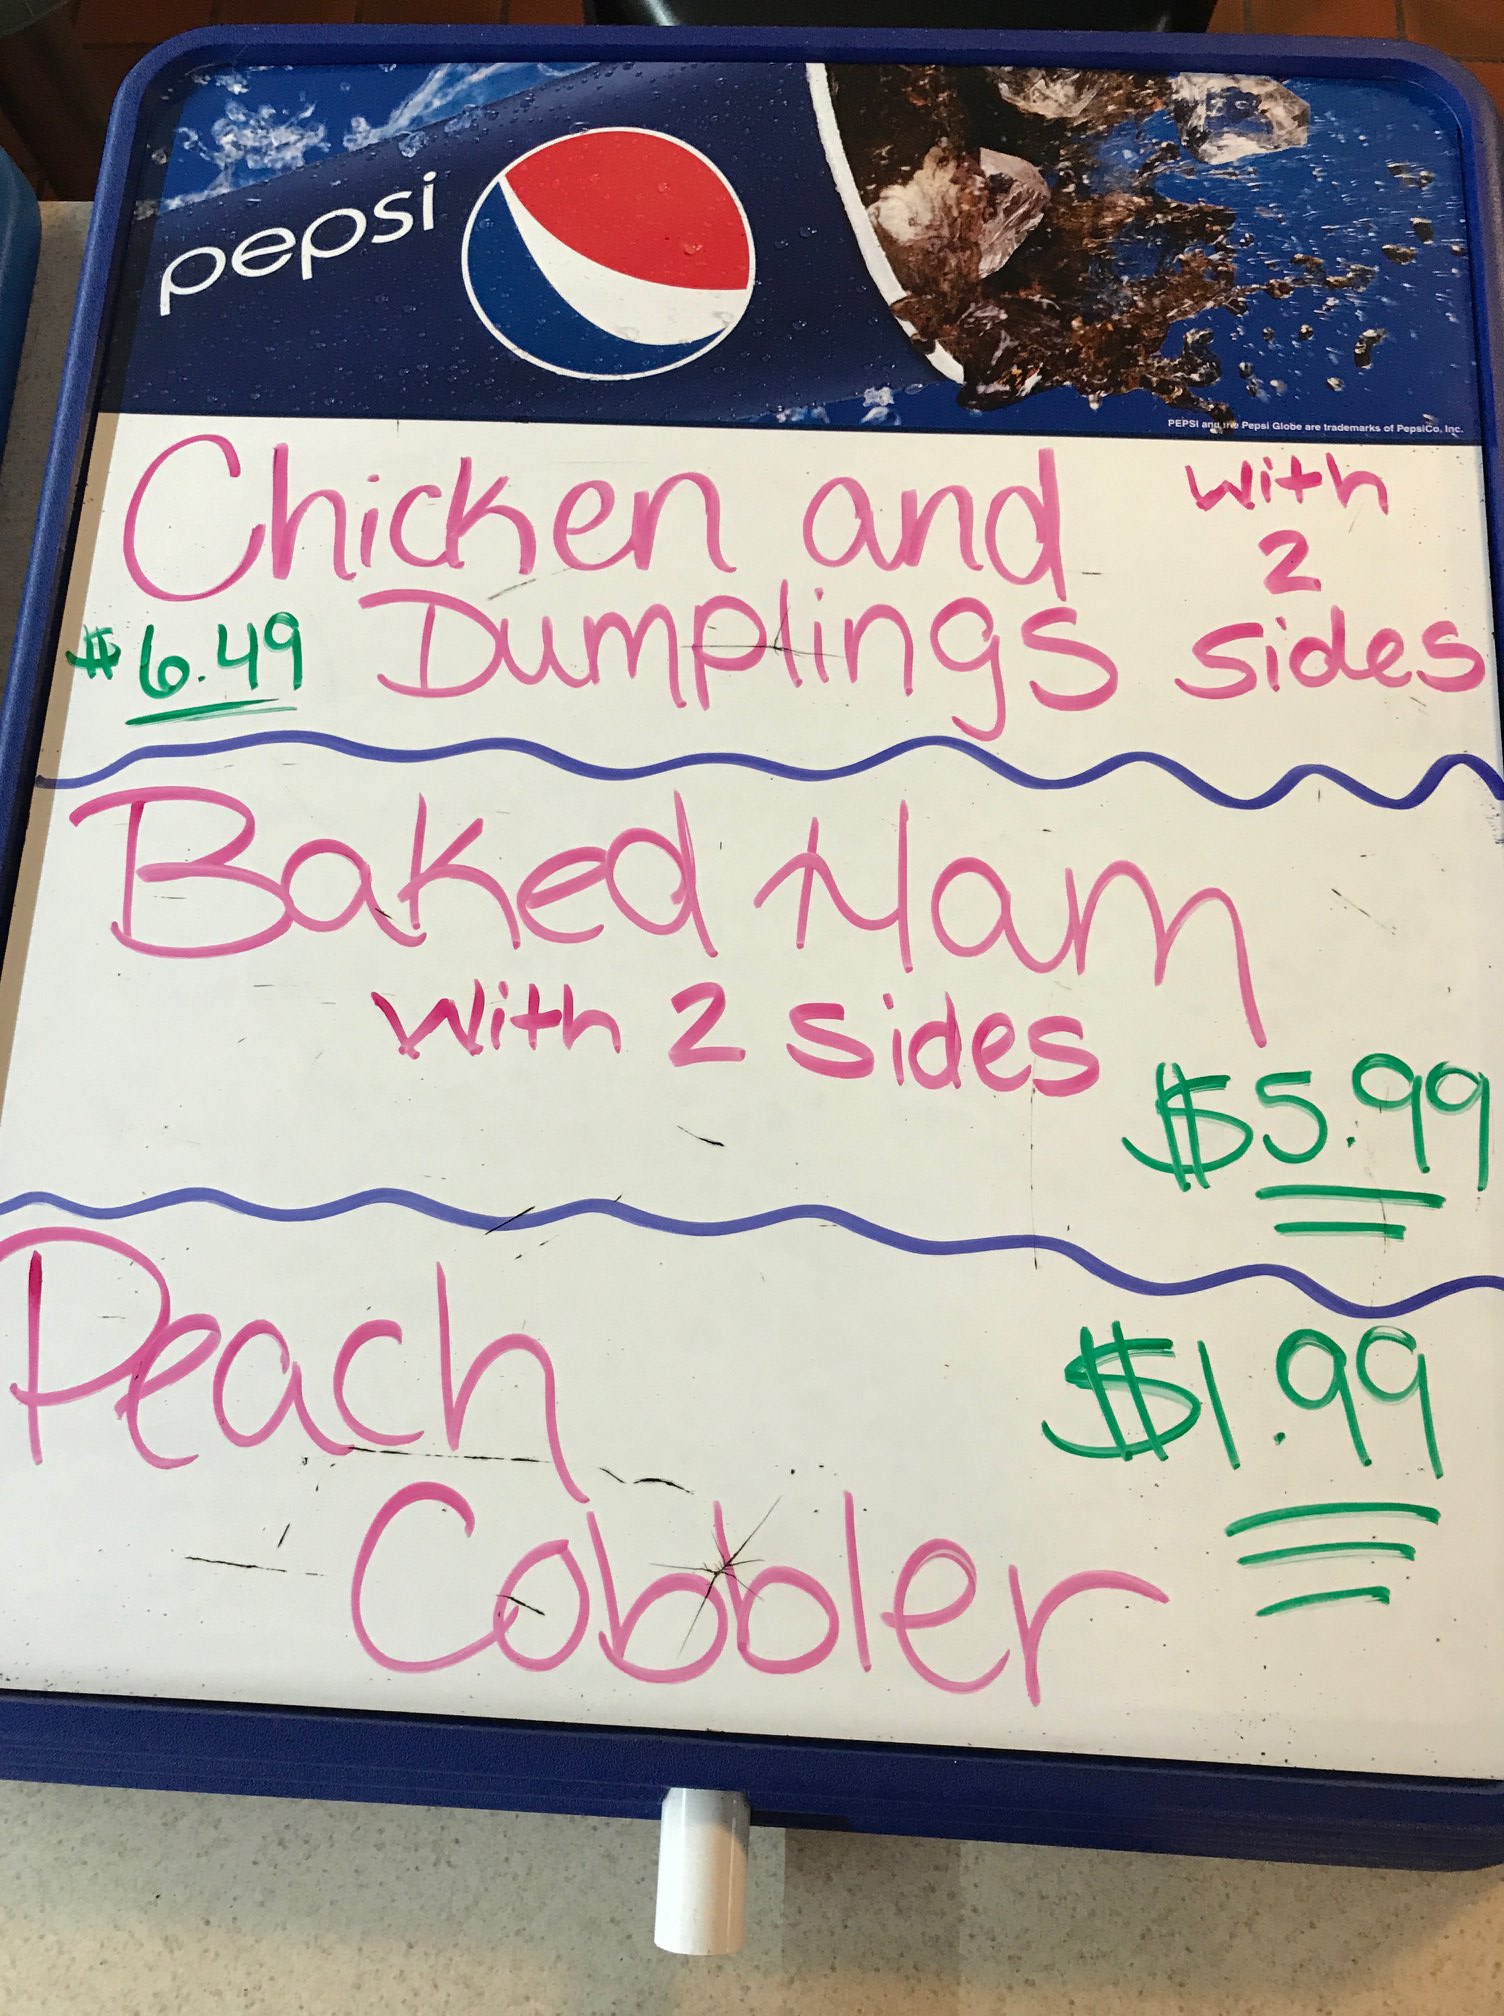 pepsi
PEPSI and the Pepsi Globe are trademarks of PepsiCo, Inc.
Chicken and
Dumplings
with
2
sides
$6.49
Baked Ham
with 2 sides
$5.99
Peach
Cobbler
$1.99